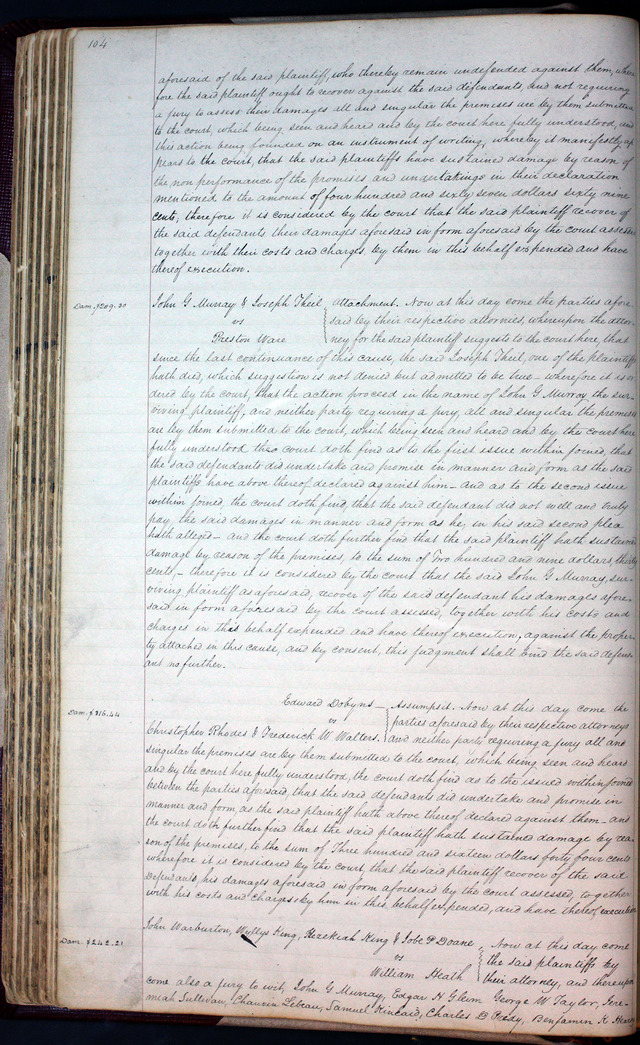 104
aforesaid of the said plaintiff, who thereby remain undefended against them, where
fore the said plaintiff ought to recover against the said defendants, and not requiring
a jury to assess their damages all and singular the premises are by them submitted
to the court, which being seen and heard and by the court here fully understood, and
this action being founded on an instrument of writing, whereby it manifestly ap
pears to the court, that the said plaintiffs have sustained damage by reason of
the non performance of the promises and undertakings in their declaration
mentioned to the amount of four hundred and sixty seven dollars sixty nine
cents; therefore it is considered by the court that the said plaintiff recover of
the said defendants their damages aforesaid in form aforesaid by the court assessed
together with their costs and charges, by them in this behalf expended and have
thereof execution.
Dam. $209.30
John G Murray & Joseph Theil } attachment. Now at this day come the parties afore
vs said by their respective attornies, whereupon the attor-
Preston Ware ney for the said plaintiff suggests to the court here, that
since the last continuance of this cause, the said Joseph Theil, one of the plaintiffs
hath died, which suggestion is not denied but admitted to be true - wherefore it is or
dered by the court, that the action proceed in the name of John G Murray the sur-
viving plaintiff, and neither party requiring a jury, all and singular the premises
are by them submitted to the court, which being seen and heard and by the court here
fully understood the court doth find as to the first issue within joined, that
the said defendants did undertake and promise in manner and form as the said
plaintiffs have above thereof declared against him - and as to the second issue
within joined, the court doth find, that the said defendant did not well and truly
pay, the said damages in manner and form as he, in his said second plea
hath alleged - and the court doth further find that the said plaintiff hath sustained
damage by reason of the premises, to the sum of Two hundred and nine dollars, thirty
cents, - therefore it is considered by the court that the said John G Murray, sur-
viving plaintiff as aforesaid, recover of the said defendant his damages afore-
said in form aforesaid by the court assessed, together with his costs and
charges in this behalf expended and have thereof execution, against the proper-
ty attached in this cause, and by consent, this judgment shall bind the said defen-
ant no further.
Dam. $316.44
Edward Dobyns } Assumpsit. Now at this day come the
vs parties aforesaid by their respective attorneys
Christopher Rhodes & Frederick W Walters. and neither party requiring a jury all and
singular the premises are by them submitted to the court, which being seen and heard
and by the court here fully understood, the court doth find as to the issued within joined
between the parties aforesaid, that the said defendants did undertake and promise in
manner and form, as the said plaintiff hath above thereof declared against them - and
the court doth further find that the said plaintiff hath sustained damage by rea
son of the premises, to the sum of Three hundred and sixteen dollars forty four cents
wherefore it is considered by the court, that the said plaintiff recover of the said
Defendants, his damages aforesaid in form aforesaid by the court assessed, together
with his costs and charges by him in this behalf expended, and have thereof execution
Dam. $242.21
John Warburton, Wyllys King, Hezekiah King & Jobe P Doane } Now at this day come
vs the said plaintiffs by
William Heath their attorney, and thereupon
come also a jury to wit, John G Murray, Edgar H Glim George W Taylor, Jere-
miah Sullivan, Chauvin Lebeau, Samuel Kincaid, Charles B Benjamin R